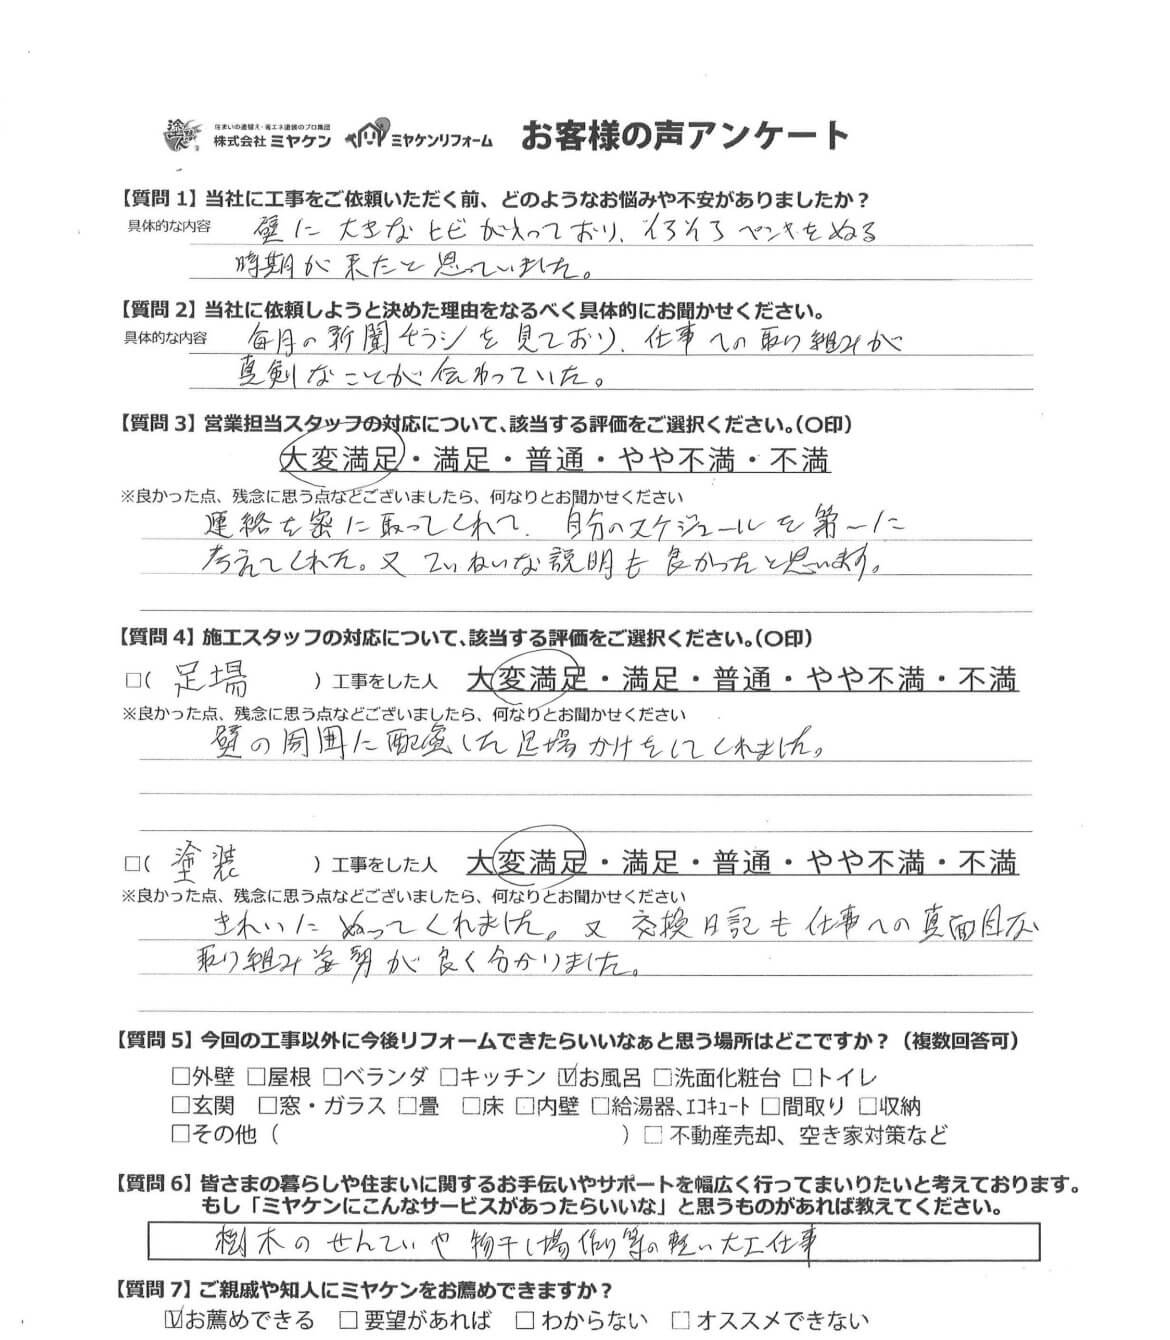 塗人 住まいの塗替え・省エネ塗装のプロ集団
株式会社 ミヤケン ミヤケンリフォーム お客様の声アンケート
【質問 1】当社に工事をご依頼いただく前、どのようなお悩みや不安がありましたか？
具体的な内容 壁に大きなヒビが入っており、そろそろペンキをぬる
時期が来たと思っていました。
【質問 2】当社に依頼しようと決めた理由をなるべく具体的にお聞かせください。
具体的な内容 毎月の新聞チラシを見ており、仕事への取り組みが
真剣なことが伝わっていた。
【質問 3】営業担当スタッフの対応について、該当する評価をご選択ください。（〇印）
大変満足・満足・普通・やや不満・不満
※良かった点、残念に思う点などございましたら、何なりとお聞かせください
連絡を密に取ってくれて、自分のスケジュールを第一に
考えてくれた。又ていねいな説明も良かったと思います。
【質問 4】施工スタッフの対応について、該当する評価をご選択ください。（〇印）
□（ 足場 ）工事をした人 大変満足・満足・普通・やや不満・不満
※良かった点、残念に思う点などございましたら、何なりとお聞かせください
壁の周囲に配慮した足場かけをしてくれました。
□（ 塗装 ）工事をした人 大変満足・満足・普通・やや不満・不満
※良かった点、残念に思う点などございましたら、何なりとお聞かせください
きれいにぬってくれました。又交換日記も仕事への真面目な
取り組み姿勢が良く分かりました。
【質問 5】今回の工事以外に今後リフォームできたらいいなぁと思う場所はどこですか？（複数回答可）
□外壁 □屋根 □ベランダ □キッチン ☑お風呂 □洗面化粧台 □トイレ
□玄関 □窓・ガラス □畳 □床 □内壁 □給湯器、ｴｺｷｭｰﾄ □間取り □収納
□その他（ ）□ 不動産売却、空き家対策など
【質問 6】皆さまの暮らしや住まいに関するお手伝いやサポートを幅広く行ってまいりたいと考えております。
もし「ミヤケンにこんなサービスがあったらいいな」と思うものがあれば教えてください。
樹木のせんていや物干し場作り等の軽い大工仕事
【質問 7】ご親戚や知人にミヤケンをお薦めできますか？
☑お薦めできる □ 要望があれば □ わからない □ オススメできない